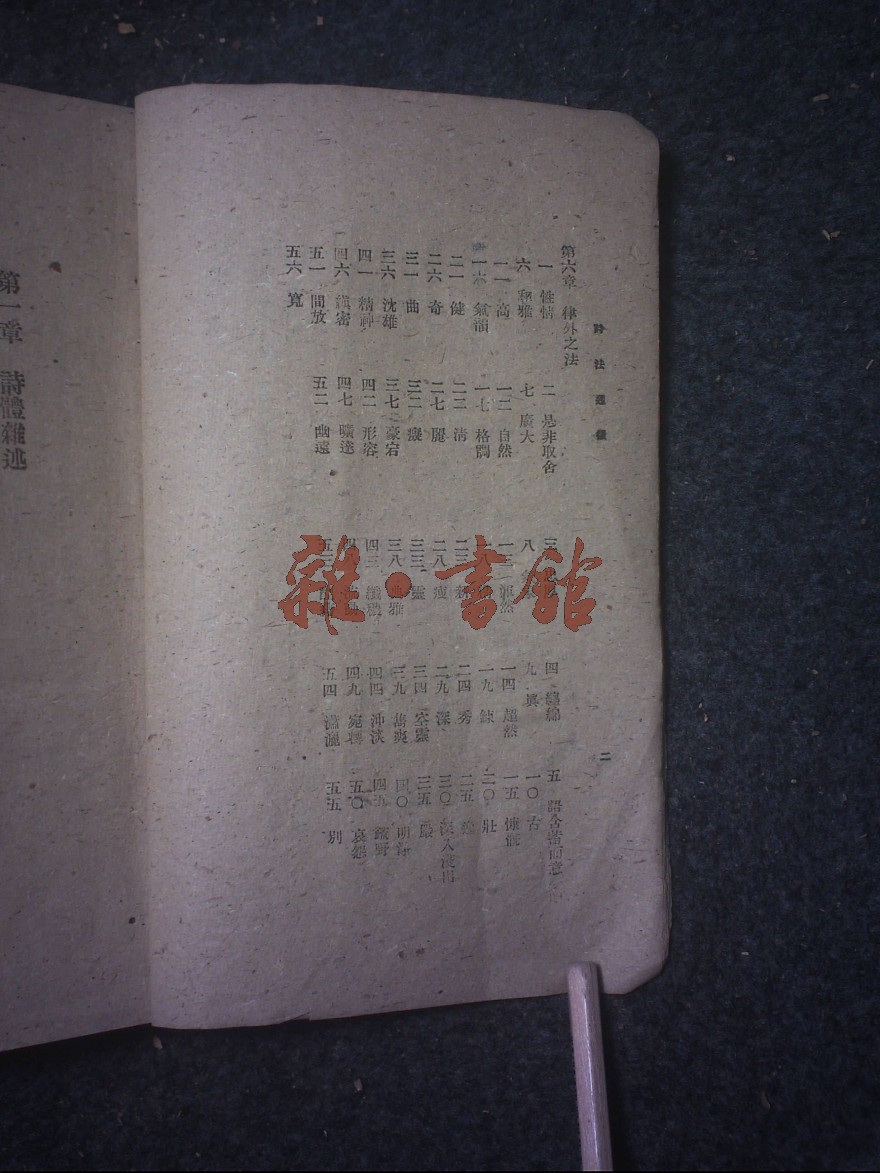 詩法通微
二
第六章 律外之法
一 性情 二 是非取舍 三 四 纏綿 五
六 和雅 七 廣大 八 九 興 一〇 古
一一 高 一二 自然 一三 渾然 一四 超然 一五 慷慨
一六 氣韻 一七 格調 一九 鍊 二〇 壯
二一 健 二二 清 二三 新 二四 秀 二五
二六 奇 二七 麗 二八 瘦 二九 深 三〇 深入淺出
三一 曲 三二 癡 三三 靈 三四 空靈 三五
三六 沈雄 三七 豪宕 三八 典雅 三九 雋爽 四〇
四一 精神 四二 形容 四三 纖穠 四四 沖淡 四五 疏野
四六 縝密 四七 曠達 四九 宛轉 五〇 哀怨
五一 閒放 五二 幽遠 五四 瀟灑 五五 別
五六 寬
第一章 詩體雜述
雜·書館